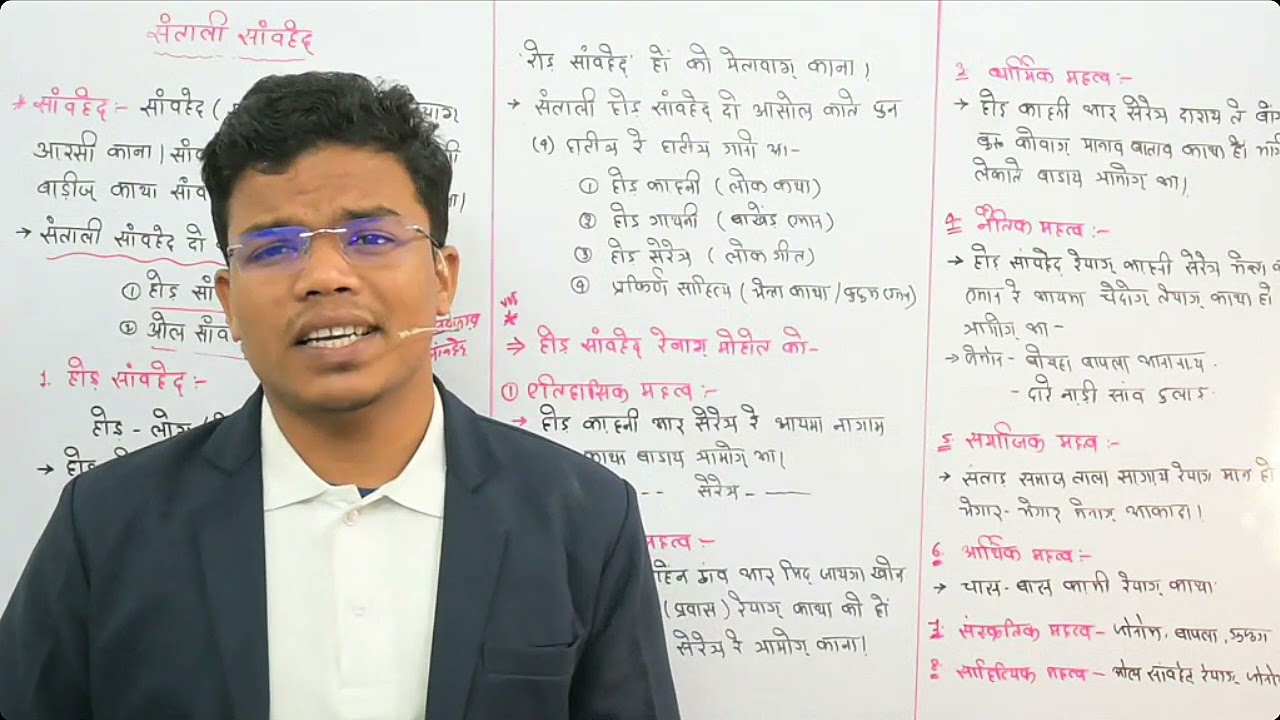 संताली सांवहेद
* सांवहेद :- सांवहेद (
आरसी काना। सांव
बाड़ीज् काथा सांव
→ संताली सांवहेद दो
① होड़ सां
② ओल सांव
सांवहेद
1. होड़ सांवहेद :-
होड़ - लोग
→ होड़
'होड़ सांवहेद' हों को मेतावाग् काना।
→ संताली होड़ सांवहेद दो आसोल काते पुन
(४) हाटिञ रे हाटिञ गानो आ-
① होड़ काहनी (लोक कथा)
② होड़ गायनी (बाखेंड़ एमान)
③ होड़ सेरेञ (लोक गीत)
④ प्रकिर्ण साहित्य (भेन्ता काथा / कुदुम एमान)
*
→ होड़ सांवहेद रेनाग् मोहोत को-
① एतिहासिक महत्व :-
→ होड़ काहनी आर सेरेञ रे आयमा नागाम
काथा बाडाय ञामोग् आ।
-- सेरेञ - ——
महत्व :-
(प्रवास) रेयाग् काथा को हों
सेरेञ रे ञामोग् काना।
3. धार्मिक महत्व :-
→ होड़ काहनी आर सेरेञ दाराय ते बों
बुरु कोवाग् मानाव बाताव काथा हों
लेकाते बाडाय ञामोग् आ।
4. नैतिक महत्व :-
→ होड़ सांवहेद रेयाग् काहनी सेरेञ भेन्ता
एमान रे आयमा चेदोग् लेयाग् काथा हों
ञामोग् आ-
→ जेमोन - बोयहा बापला
- दारे नाड़ी सांव दुलाड़
5. समाजिक महत्व :-
→ संताड़ समाज ताला सागाय रेयाग् मान हों
भेगार-भेगार मेनाग् आकादा।
6. आर्थिक महत्व :-
→ चास-बास कामी रेयाग् काथा
7. संस्कृतिक महत्व - जोनोम, बापला,
8. साहित्यिक महत्व - ओल सांवहेद् रेयाग् जोनोम